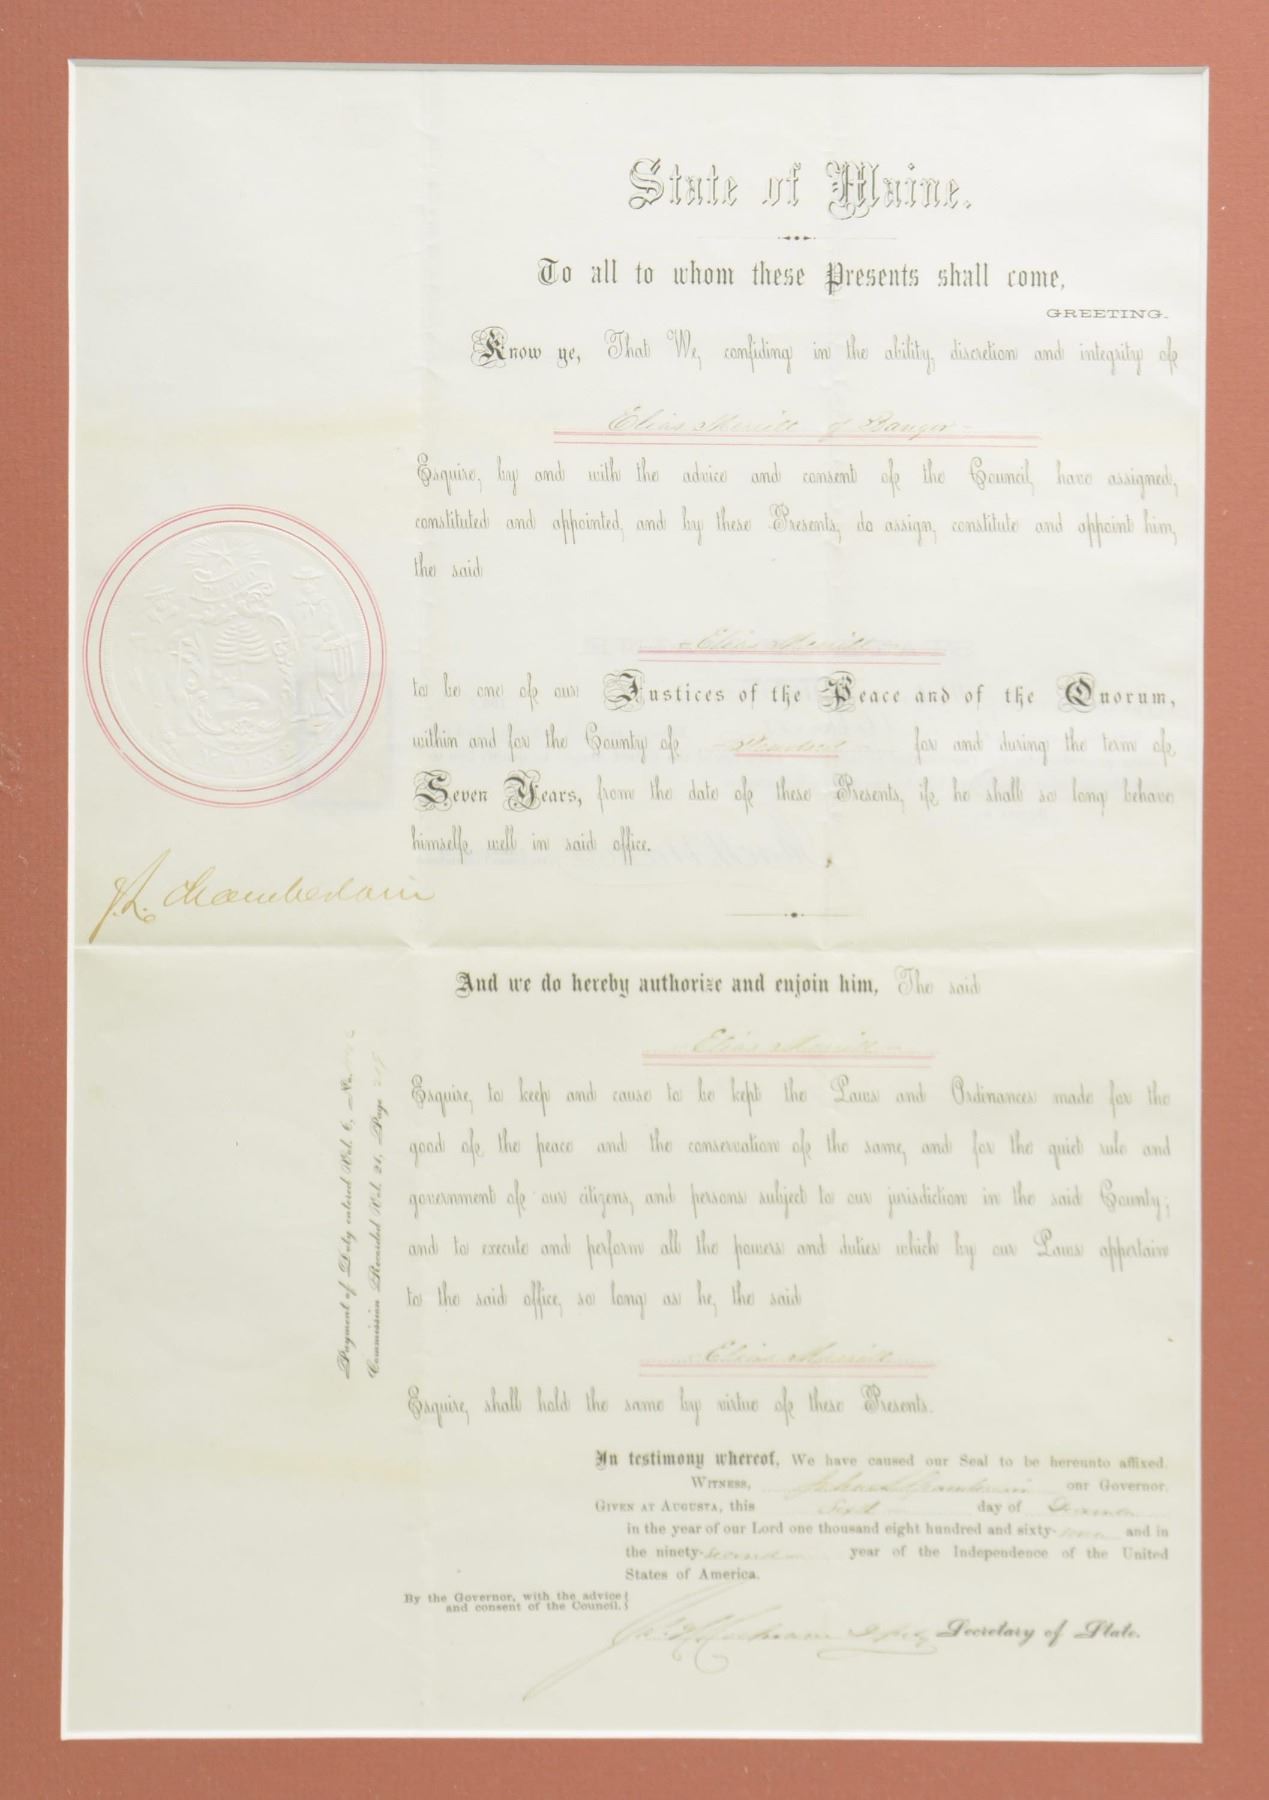 State of Maine.
To all to whom these Presents shall come,
GREETING.
Know ye, That We, confiding in the ability, discretion and integrity of
Elias Merrill of Bangor
Esquire, by and with the advice and consent of the Council, have assigned,
constituted and appointed, and by these Presents, do assign, constitute and appoint him,
the said
Elias Merrill
to be one of our Justices of the Peace and of the Quorum,
within and for the County of Penobscot for and during the term of
Seven Years, from the date of these Presents, if he shall so long behave
himself well in said office.
J. L. Chamberlain
And we do hereby authorize and enjoin him, The said
Elias Merrill
Esquire, to keep and cause to be kept the Laws and Ordinances made for the
good of the peace and the conservation of the same, and for the quiet rule and
government of our citizens, and persons subject to our jurisdiction in the said County;
and to execute and perform all the powers and duties which by our Laws appertain
to the said office, so long as he, the said
Elias Merrill
Esquire, shall hold the same by virtue of these Presents.
Payment of Duty entered Vol. 6, No.
Commission Recorded Vol. 21, Page
In testimony whereof, We have caused our Seal to be hereunto affixed.
WITNESS, Joshua L Chamberlain our Governor.
GIVEN AT AUGUSTA, this day of
in the year of our Lord one thousand eight hundred and sixty- and in
the ninety-second year of the Independence of the United
States of America.
By the Governor, with the advice
and consent of the Council.
Secretary of State.